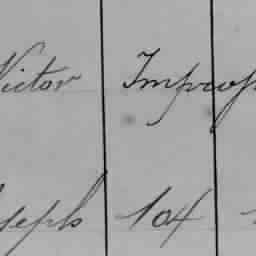 Victor
Joseph 104